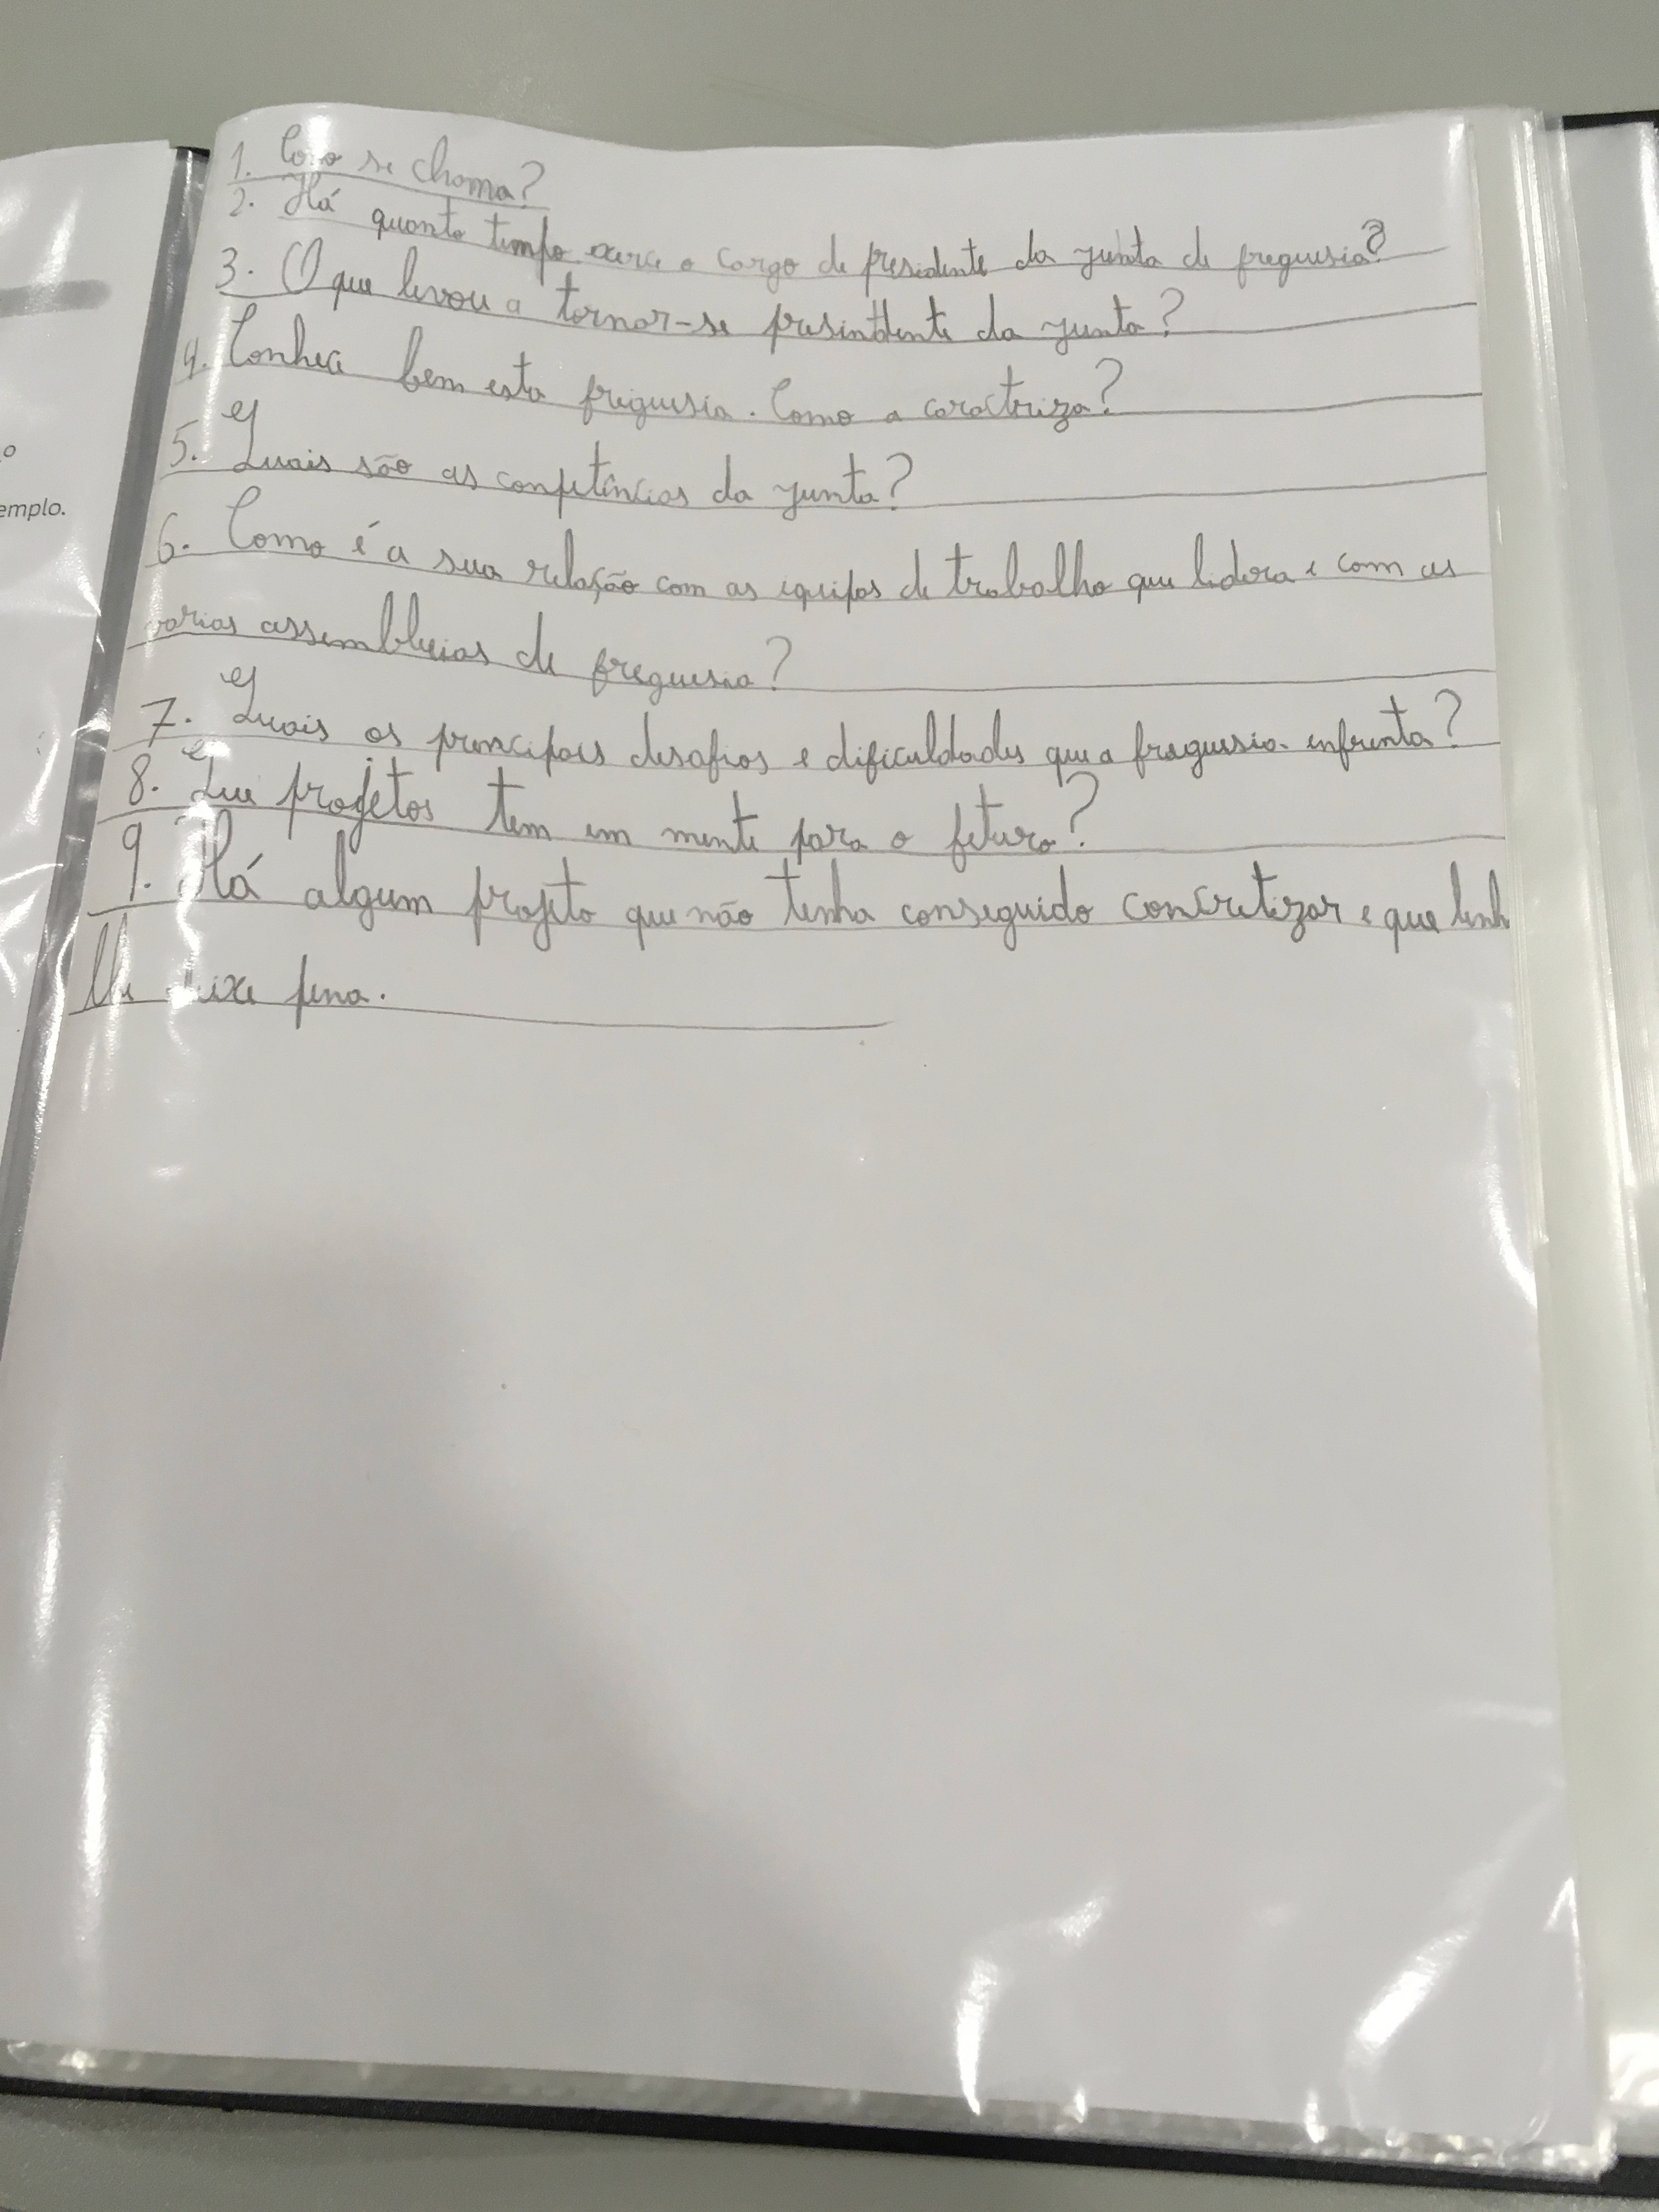 1. Como se chama?
2. Há quanto tempo exerce o cargo de presidente da junta de freguesia?
3. O que levou a tornar-se presindente da junta?
4. Conhece bem esta freguesia. Como a caractriza?
5. Quais são as competências da junta?
6. Como é a sua relação com as equipas de trabalho que lidera e com as
varias assembleias de freguesia?
7. Quais os principais desafios e dificuldades que a freguesia enfrenta?
8. Que projetos tem em mente para o feturo?
9. Há algum projeto que não tenha conseguido concretizar e que
lhe deixe pena.
o
emplo.